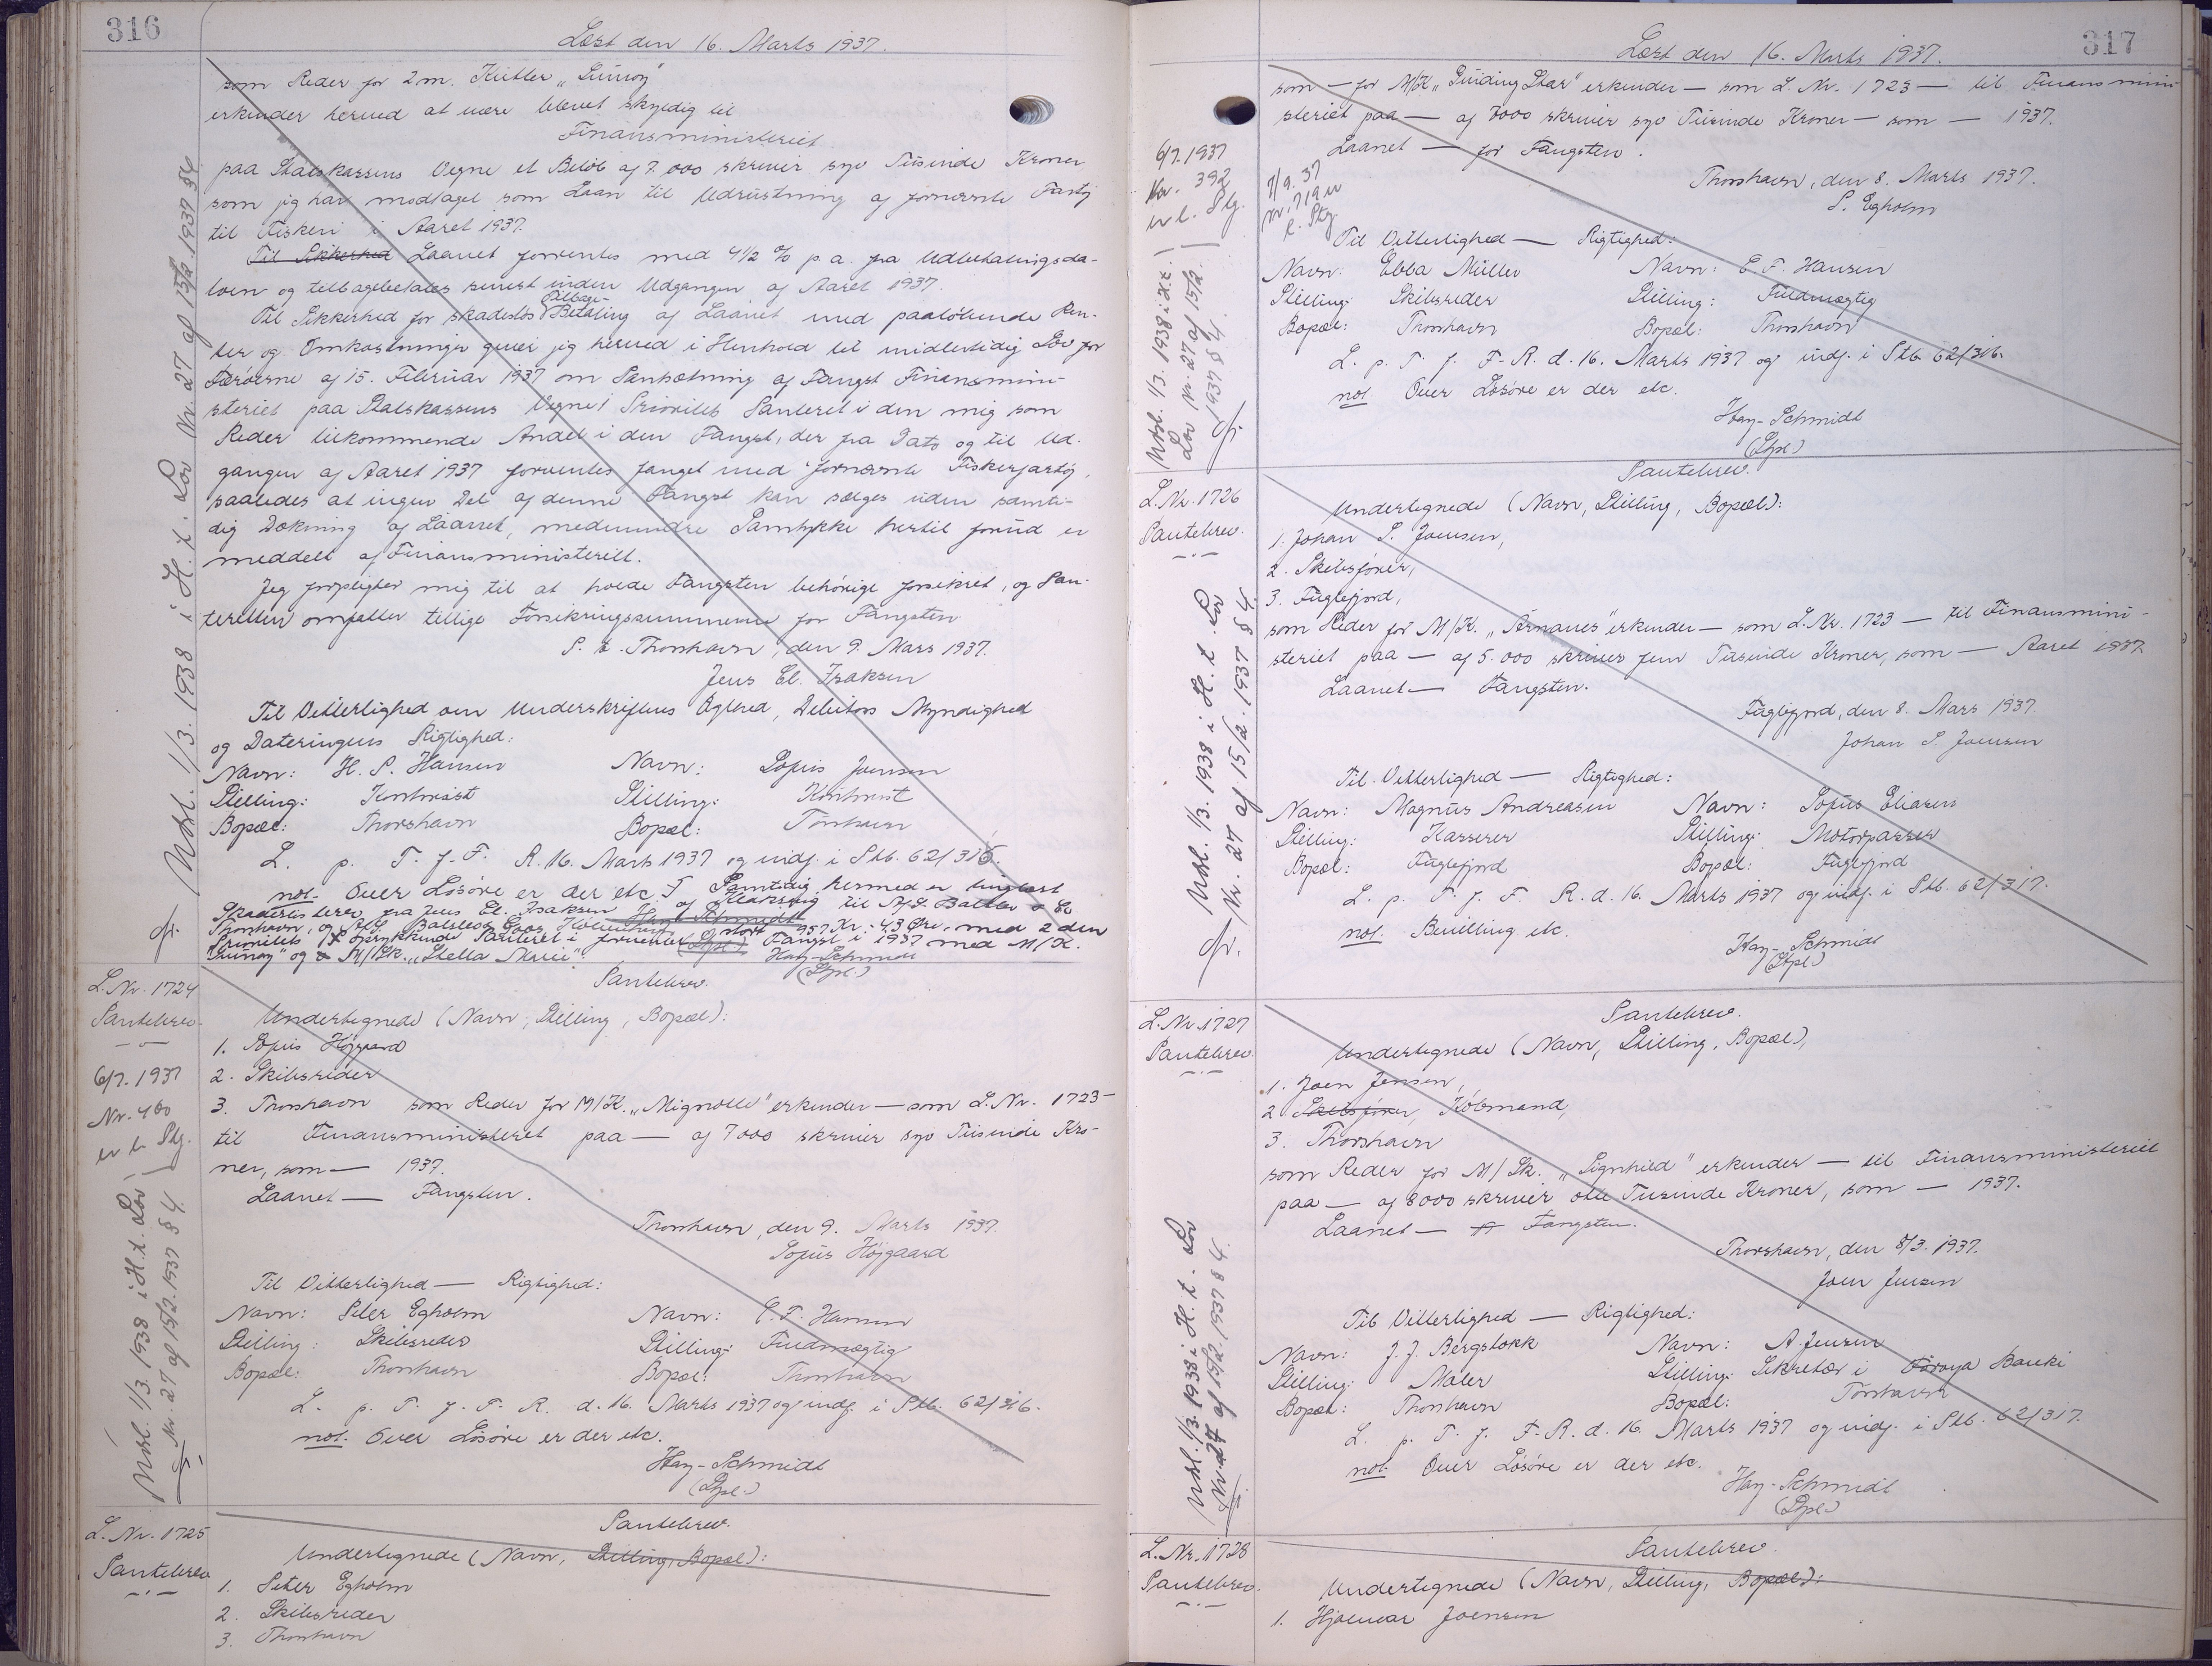 316
Læst den 16. Marts 1937.
som Reder for 2 m. Kutter „Suðuroy"
erkender herved at være blevet skyldig til
Finansministeriet
paa Statskassens Vegne et Beløb af 7.000 skriver syv Tusinde Kroner
som jeg har modtaget som Laan til Udrustning af fornævnte Fartøj
til Fiskeri i Aaret 1937.
Til Sikkerhed Laanet forrentes med 4 1/2 % p.a. fra Udbetalingsda-
toen og tilbagebetales senest inden Udgangen af Aaret 1937.
Til Sikkerhed for skadesløs Tilbage-Betaling af Laanet med paaløbende Ren-
ter og Omkostninger giver jeg herved i Henhold til midlertidig Lov for
Færøerne af 15. Februar 1937 om Pantsætning af Fangst Finansmini-
steriet paa Statskassens Vegne 1 Prioritets Panteret i den mig som
Reder tilkommende Andel i den Fangst, der fra Dato og til Ud-
gangen af Aaret 1937 forventes fanget med fornævnte Fiskerfartøj,
saaledes at ingen Del af denne Fangst kan sælges uden samti-
dig Dækning af Laanet, medmindre Samtykke hertil forud er
meddelt af Finansministeriet.
Jeg forpligter mig til at holde Fangsten behørigt forsikret, og Pan-
teretten omfatter tillige Forsikringssummerne for Fangsten
p. t. Thorshavn, den 9. Mars 1937.
Jens El. Isaksen
Til Vitterlighed om Underskriftens Ægthed, Debitors Myndighed
og Dateringens Rigtighed:
Navn: H. P. Hansen Navn: Sofus Joensen
Stilling: Kontorist Stilling: Kontorist
Bopæl: Thorshavn Bopæl: Tórshavn
L. p. T. f. F. R. 16. Marts 1937 og indf. i Sktb. 62/316.
not. Over Løsøre er der etc. Samtidig hermed er tinglæst
Skadesløsbrev fra Jens El. Isaksen af Klaksvig til
Thorshavn, og stort 957 Kr. 43 Øre, med 2den
Prioritets oprykkende Panteret i forventet Fangst i 1937 med M/K.
og M/Sk. „Stella Marie"
Hay-Schmidt
(Stpl.)
Udsl. 1/3. 1938 i H. t. Lov Nr. 27 af 15/2. 1937 § 4
L. Nr. 1724
Pantebrev
6/7. 1937
Nr. 400
Udsl. 1/3. 1938 i H. t. Lov
Nr. 27 af 15/2. 1937 § 4.
Pantebrev.
Undertegnede (Navn, Stilling, Bopæl):
1. Sofus Højgaard
2. Skibsreder
3. Thorshavn som Reder for M/K. „Mignotte" erkender — som L. Nr. 1723 —
til Finansministeriet paa — af 7000 skriver syv Tusinde Kro-
ner, som — 1937.
Laanet — Fangsten.
Thorshavn, den 9. Marts 1937.
Sofus Højgaard
Til Vitterlighed — Rigtighed:
Navn: Peter Egholm Navn: E. F. Hansen
Stilling: Skibsreder Stilling: Fuldmægtig
Bopæl: Thorshavn Bopæl: Thorshavn
L. p. T. f. F. R. d. 16. Marts 1937 og indf. i Sktb. 62/316.
not. Over Løsøre er der etc.
Hay-Schmidt
(Stpl.)
L. Nr. 1725
Pantebrev
Pantebrev.
Undertegnede (Navn, Stilling, Bopæl):
1. Peter Egholm
2. Skibsreder
3. Thorshavn
317
Læst den 16. Marts 1937.
som — for M/K „Guiding Star" erkender — som L. Nr. 1723 — til Finansmini-
steriet paa — af 7000 skriver syv Tusinde Kroner — som — 1937.
Laanet — for Fangsten.
Thorshavn, den 8. Marts 1937.
P. Egholm
6/7. 1937
Nr. 392
7/9. 37
Nr. 719
Udsl. 1/3. 1938 i H. t.
Lov Nr. 27 af 15/2.
1937 § 4.
Til Vitterlighed — Rigtighed:
Navn: Ebba Müller Navn: E. F. Hansen
Stilling: Skibsreder Stilling: Fuldmægtig
Bopæl: Thorshavn Bopæl: Thorshavn
L. p. T. f. F. R. d. 16. Marts 1937 og indf. i Sktb. 62/316.
not Over Løsøre er der etc.
Hay-Schmidt
(Stpl.)
L. Nr. 1726
Pantebrev.
Udsl. 1/3. 1938 i H. t. Lov
Nr. 27 af 15/2. 1937 § 4.
Pantebrev.
Undertegnede (Navn, Stilling, Bopæl):
1. Johan P. Joensen,
2. Skibsfører,
3. Fuglefjord,
som Reder for M/K. „Arnanes" erkender — som L. Nr. 1723 — til Finansmini-
steriet paa — af 5.000 skriver fem Tusinde Kroner, som — Aaret 1937.
Laanet — Fangsten.
Fuglefjord, den 8. Mars 1937.
Johan P. Joensen
Til Vitterlighed — Rigtighed:
Navn: Magnus Andreasen Navn: Sofus Eliasen
Stilling: Kasserer Stilling: Motorpasser
Bopæl: Fuglefjord Bopæl: Fuglefjord
L. p. T. f. F. R. d. 16. Marts 1937 og indf. i Sktb. 62/317.
not. Bevilling etc.
Hay-Schmidt
(Stpl.)
L. Nr. 1727
Pantebrev
Udsl. 1/3. 1938 i H. t. Lov
Nr. 27 af 15/2. 1937 § 4.
Pantebrev.
Undertegnede (Navn, Stilling, Bopæl),
1. Joen Jensen,
2 Skibsfører, Købmand,
3. Thorshavn
som Reder for M/Sk. „Signhild" erkender — til Finansministeriet
paa — af 8000 skriver otte Tusinde Kroner, som — 1937.
Laanet — Fangsten.
Thorshavn, den 8/3. 1937.
Joen Jensen
Til Vitterlighed — Rigtighed:
Navn: J. J. Bergstokk Navn: A. Jensen
Stilling: Maler Stilling: Sekretær i Føroya Banki
Bopæl: Thorshavn Bopæl: Tórshavn
L. p. T. f. F. R. d. 16. Marts 1937 og indf. i Sktb. 62/317.
not. Over Løsøre er der etc.
Hay-Schmidt
(Stpl.)
L. Nr. 1728
Pantebrev.
Pantebrev.
Undertegnede (Navn, Stilling, Bopæl):
1. Hjalmar Joensen